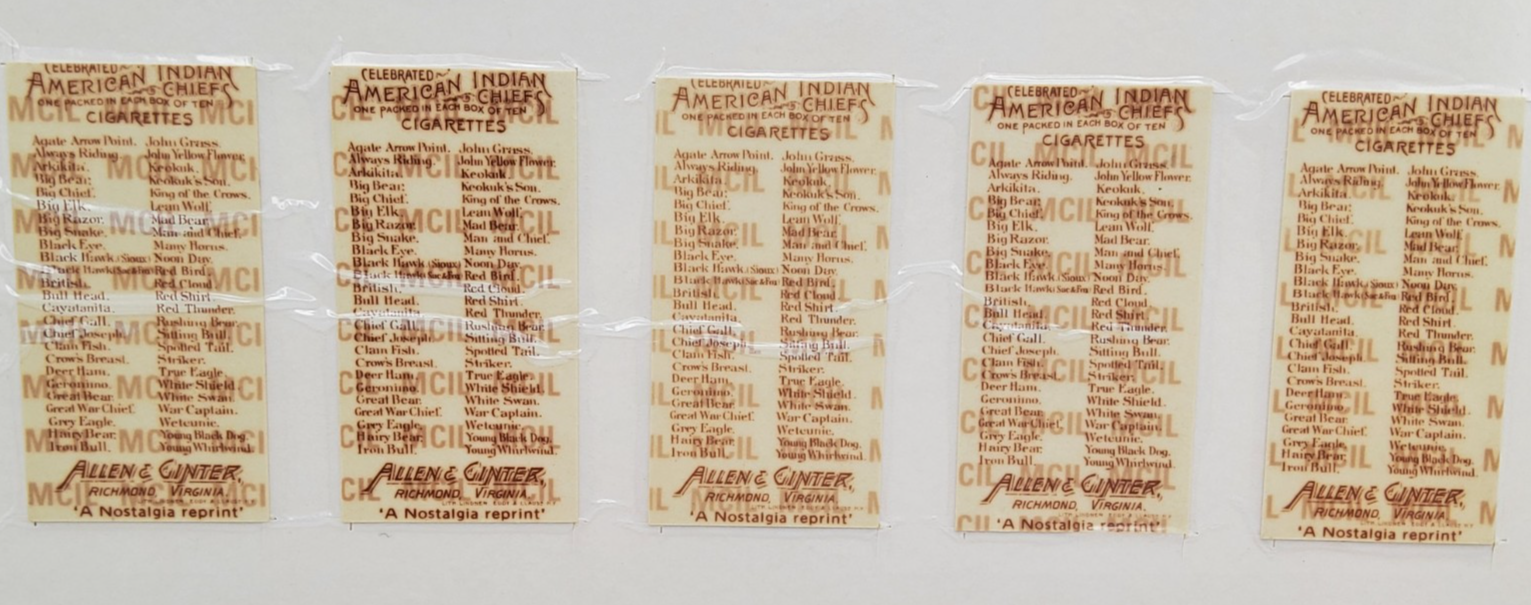 CELEBRATED
AMERICAN INDIAN CHIEFS
ONE PACKED IN EACH BOX OF TEN
CIGARETTES
Agate Arrow Point. John Grass.
Always Riding. John Yellow Flower.
Arkikita. Keokuk.
Big Bear. Keokuk's Son.
Big Chief. King of the Crows.
Big Elk. Lean Wolf.
Big Razor. Mad Bear.
Big Snake. Man and Chief.
Black Eye. Many Horns.
Black Hawk (Sioux) Noon Day.
Black Hawk (Sac & Fox) Red Bird.
British. Red Cloud.
Bull Head. Red Shirt.
Cayatanita. Red Thunder.
Chief Gall. Rushing Bear.
Chief Joseph. Sitting Bull.
Clam Fish. Spotted Tail.
Crow's Breast. Striker.
Deer Ham. True Eagle.
Geronimo. White Shield.
Great Bear. White Swan.
Great War Chief. War Captain.
Grey Eagle. Wetcunie.
Hairy Bear. Young Black Dog.
Iron Bull. Young Whirlwind.
ALLEN & GINTER,
RICHMOND, VIRGINIA.
'A Nostalgia reprint'
CELEBRATED
AMERICAN INDIAN CHIEFS
ONE PACKED IN EACH BOX OF TEN
CIGARETTES
Agate Arrow Point. John Grass.
Always Riding. John Yellow Flower.
Arkikita. Keokuk.
Big Bear. Keokuk's Son.
Big Chief. King of the Crows.
Big Elk. Lean Wolf.
Big Razor. Mad Bear.
Big Snake. Man and Chief.
Black Eye. Many Horns.
Black Hawk (Sioux) Noon Day.
Black Hawk (Sac & Fox) Red Bird.
British. Red Cloud.
Bull Head. Red Shirt.
Cayatanita. Red Thunder.
Chief Gall. Rushing Bear.
Chief Joseph. Sitting Bull.
Clam Fish. Spotted Tail.
Crow's Breast. Striker.
Deer Ham. True Eagle.
Geronimo. White Shield.
Great Bear. White Swan.
Great War Chief. War Captain.
Grey Eagle. Wetcunie.
Hairy Bear. Young Black Dog.
Iron Bull. Young Whirlwind.
ALLEN & GINTER,
RICHMOND, VIRGINIA.
'A Nostalgia reprint'
CELEBRATED
AMERICAN INDIAN CHIEFS
ONE PACKED IN EACH BOX OF TEN
CIGARETTES
Agate Arrow Point. John Grass.
Always Riding. John Yellow Flower.
Arkikita. Keokuk.
Big Bear. Keokuk's Son.
Big Chief. King of the Crows.
Big Elk. Lean Wolf.
Big Razor. Mad Bear.
Big Snake. Man and Chief.
Black Eye. Many Horns.
Black Hawk (Sioux) Noon Day.
Black Hawk (Sac & Fox) Red Bird.
British. Red Cloud.
Bull Head. Red Shirt.
Cayatanita. Red Thunder.
Chief Gall. Rushing Bear.
Chief Joseph. Sitting Bull.
Clam Fish. Spotted Tail.
Crow's Breast. Striker.
Deer Ham. True Eagle.
Geronimo. White Shield.
Great Bear. White Swan.
Great War Chief. War Captain.
Grey Eagle. Wetcunie.
Hairy Bear. Young Black Dog.
Iron Bull. Young Whirlwind.
ALLEN & GINTER,
RICHMOND, VIRGINIA.
'A Nostalgia reprint'
CELEBRATED
AMERICAN INDIAN CHIEFS
ONE PACKED IN EACH BOX OF TEN
CIGARETTES
Agate Arrow Point. John Grass.
Always Riding. John Yellow Flower.
Arkikita. Keokuk.
Big Bear. Keokuk's Son.
Big Chief. King of the Crows.
Big Elk. Lean Wolf.
Big Razor. Mad Bear.
Big Snake. Man and Chief.
Black Eye. Many Horns.
Black Hawk (Sioux) Noon Day.
Black Hawk (Sac & Fox) Red Bird.
British. Red Cloud.
Bull Head. Red Shirt.
Cayatanita. Red Thunder.
Chief Gall. Rushing Bear.
Chief Joseph. Sitting Bull.
Clam Fish. Spotted Tail.
Crow's Breast. Striker.
Deer Ham. True Eagle.
Geronimo. White Shield.
Great Bear. White Swan.
Great War Chief. War Captain.
Grey Eagle. Wetcunie.
Hairy Bear. Young Black Dog.
Iron Bull. Young Whirlwind.
ALLEN & GINTER,
RICHMOND, VIRGINIA.
'A Nostalgia reprint'
CELEBRATED
AMERICAN INDIAN CHIEFS
ONE PACKED IN EACH BOX OF TEN
CIGARETTES
Agate Arrow Point. John Grass.
Always Riding. John Yellow Flower.
Arkikita. Keokuk's Son.
Big Bear. King of the Crows.
Big Chief. Lean Wolf.
Big Elk. Mad Bear.
Big Razor. Man and Chief.
Big Snake. Many Horns.
Black Eye. Noon Day.
Black Hawk (Sioux) Red Bird.
Black Hawk (Sac & Fox) Red Cloud.
British. Red Shirt.
Bull Head. Red Thunder.
Cayatanita. Rushing Bear.
Chief Gall. Sitting Bull.
Chief Joseph. Spotted Tail.
Clam Fish. Striker.
Crow's Breast. True Eagle.
Deer Ham. White Shield.
Geronimo. White Swan.
Great Bear. War Captain.
Great War Chief. Wetcunie.
Grey Eagle. Young Black Dog.
Hairy Bear. Young Whirlwind.
Iron Bull.
ALLEN & GINTER,
RICHMOND, VIRGINIA.
'A Nostalgia reprint'